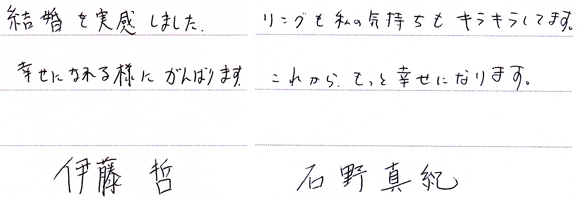 結婚を実感しました.
幸せになれる様にがんばります.
伊藤 哲
リングも私の気持ちもキラキラしてます。
これから、もっと幸せになります。
石野真紀